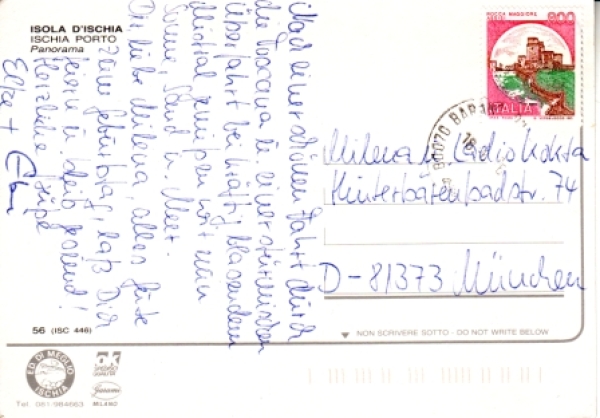 ISOLA D'ISCHIA
ISCHIA PORTO
Panorama
Nach einer schönen Fahrt durch
die Toscana u. einer stürmischen
Überfahrt bei kräftig blasendem
Mistral genießen wir nun
Sonne, Sand u. Meer.
Dir, liebe Milena, alles Gute
zum Geburtstag, laß Dich
feiern u. bleib gesund!
Herzliche Grüße
Elke +
ROCCA MAGGIORE
800
ITALIA
80070 BARA
Milena u. Ladio Kokta
Hinterbärenbadstr. 74
D-81373 München
56 (ISC 446)
NON SCRIVERE SOTTO - DO NOT WRITE BELOW
ED. DI MEGLIO
ISCHIA
Tel. 081/984663
ok
MILANO